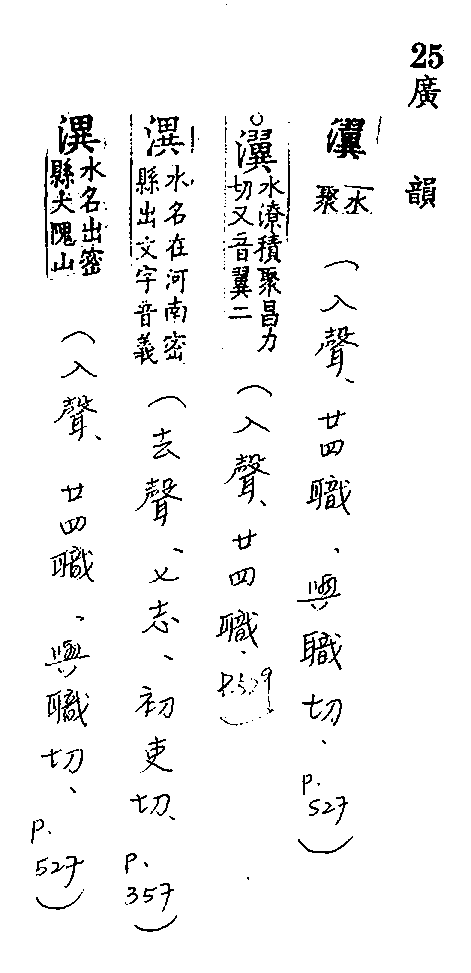 25 廣韻
瀷 水聚 (入聲、廿四職、與職切、p.527)
瀷 水潦積聚昌力切又音翼二 (入聲、廿四職、p.529)
潩 水名在河南密縣出文字音義 (去聲、七志、初吏切、p.357)
潩 水名出密縣大隗山 (入聲、廿四職、與職切、p.527)